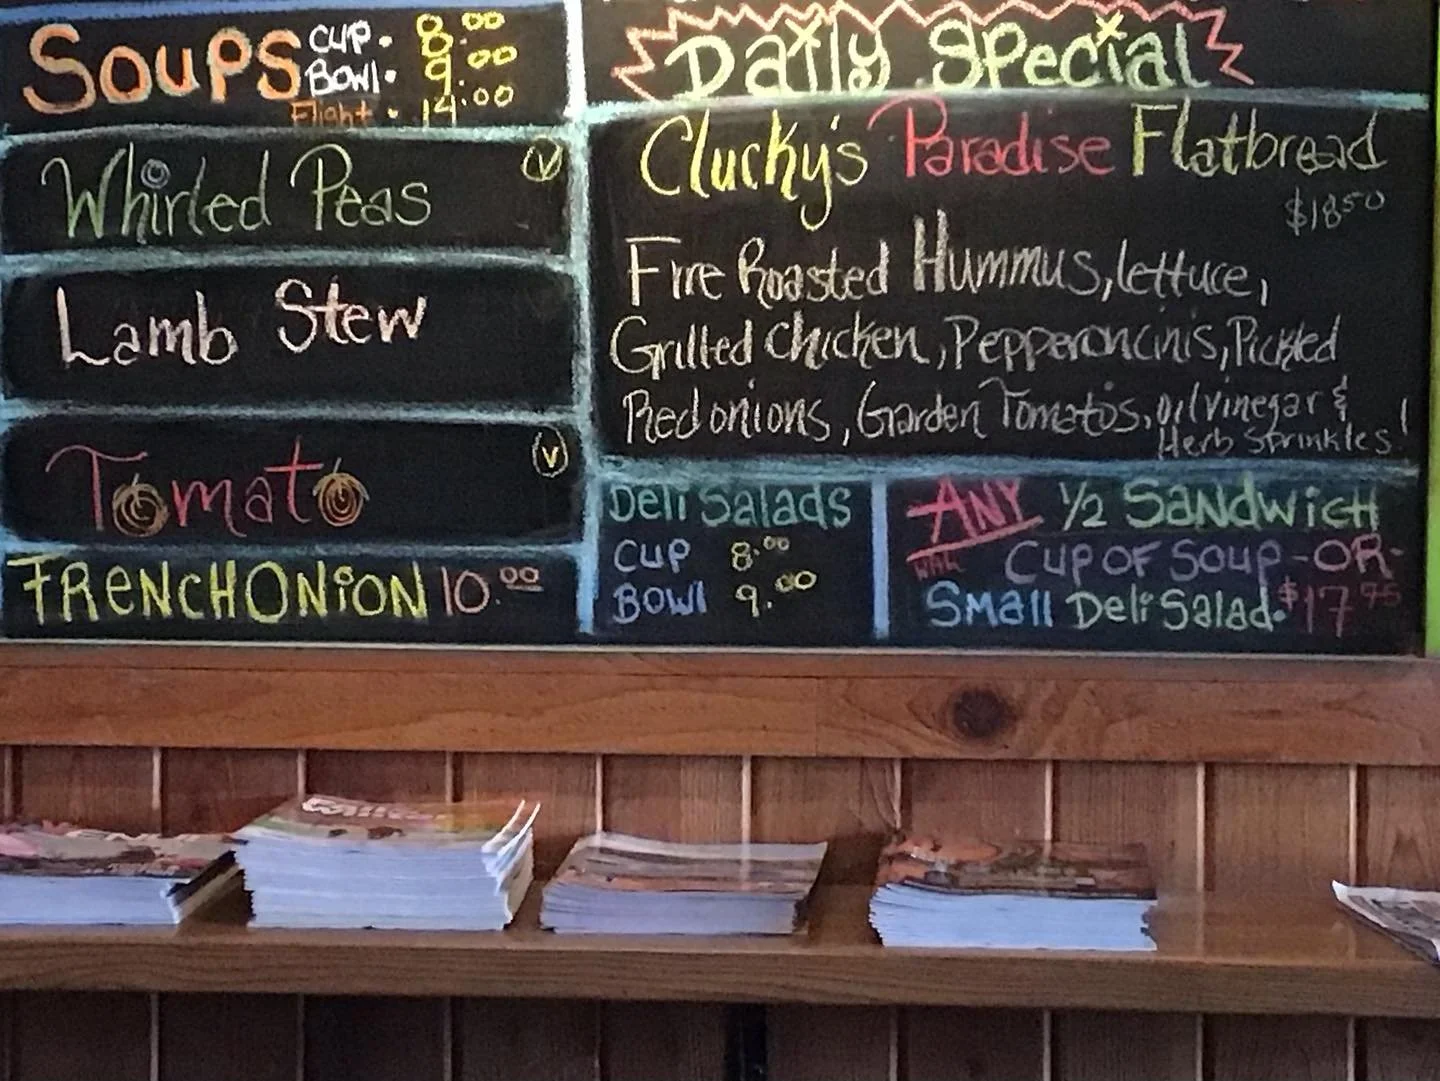 SOUPS CUP. 8.00
BOWl. 9.00
Flight. 14.00
Whirled Peas V
Lamb Stew
Tomato V
FRENCH ONiON 10.00
Daily Special
Clucky's Paradise Flatbread
$18.50
Fire Roasted Hummus, lettuce,
Grilled Chicken, Pepperoncinis, Pickled
Red onions, Garden Tomatos, oil vinegar &
Herb Sprinkles!
Deli Salads
CUP 8.00
BOWl 9.00
ANY 1/2 SANDWiCH
with CUP OF SOUP -OR-
SMAll Deli Salad. $17.95